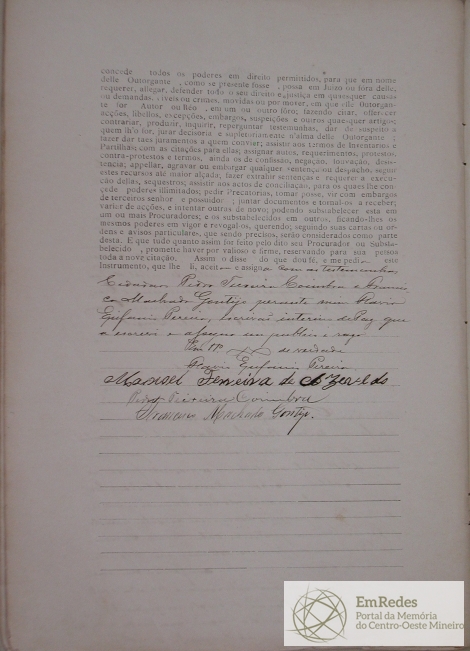 concede todos os poderes em direito permittidos, para que em nome
delle Outorgante, como se presente fosse, possa em Juizo ou fóra delle,
requerer, allegar, defender todo o seu direito e justiça em quaesquer causas
ou demandas, civeis ou crimes, movidas ou por mover, em que elle Outorgan-
te fôr Autor ou Réo, em um ou outro fôro; fazendo citar, offerecer
acções, libellos, excepções, embargos, suspeições e outros quaesquer artigos;
contrariar, produzir, inquirir, reperguntar testemunhas, dar de suspeito a
quem lh'o fôr, jurar decisoria e suppletoriamente n'alma delle Outorgante;
fazer dar taes juramentos a quem convier; assistir aos termos de Inventarios e
Partilhas, com as citações para ellas; assignar autos, requerimentos, protestos,
contra-protestos e termos, ainda os de confissão, negação, louvação, desis-
tencia; appellar, aggravar ou embargar qualquer sentença ou despacho, seguir
estes recursos até maior alçada; fazer extrahir sentenças e requerer a execu-
ção dellas, sequestros; assistir aos actos de conciliação, para os quaes lhe con-
cede poderes illimitados; pedir Precatorias, tomar posse, vir com embargos
de terceiros senhor e possuidor; juntar documentos e tornal-os a receber;
variar de acções, e intentar outras de novo; podendo substabelecer esta em
um ou mais Procuradores; e os substabelecidos em outros, ficando-lhes os
mesmos poderes em vigor e revogal-os, querendo; segundo suas cartas ou or-
dens e avisos particulares, que sendo precisos, serão considerados como parte
desta. E que tudo quanto assim for feito pelo dito seu Procurador ou Substa-
belecido, promette haver por valioso e firme, reservando para sua pessoa
toda a nova citação. Assim o disse do que dou fé, e me pediu este
Instrumento, que lhe li, aceitou e assigna com as testemunhas
Pedro Teixeira Coimbra e
Machado Gontijo perante mim Flavio
Pereira, escrivão interino de Paz que
a escrevi e assigno em publico e raso
de verdade
Flavio Pereira
Manoel Ferreira de Azevedo
Pedro Teixeira Coimbra
Machado Gontijo.
EmRedes
Portal da Memória
do Centro-Oeste Mineiro